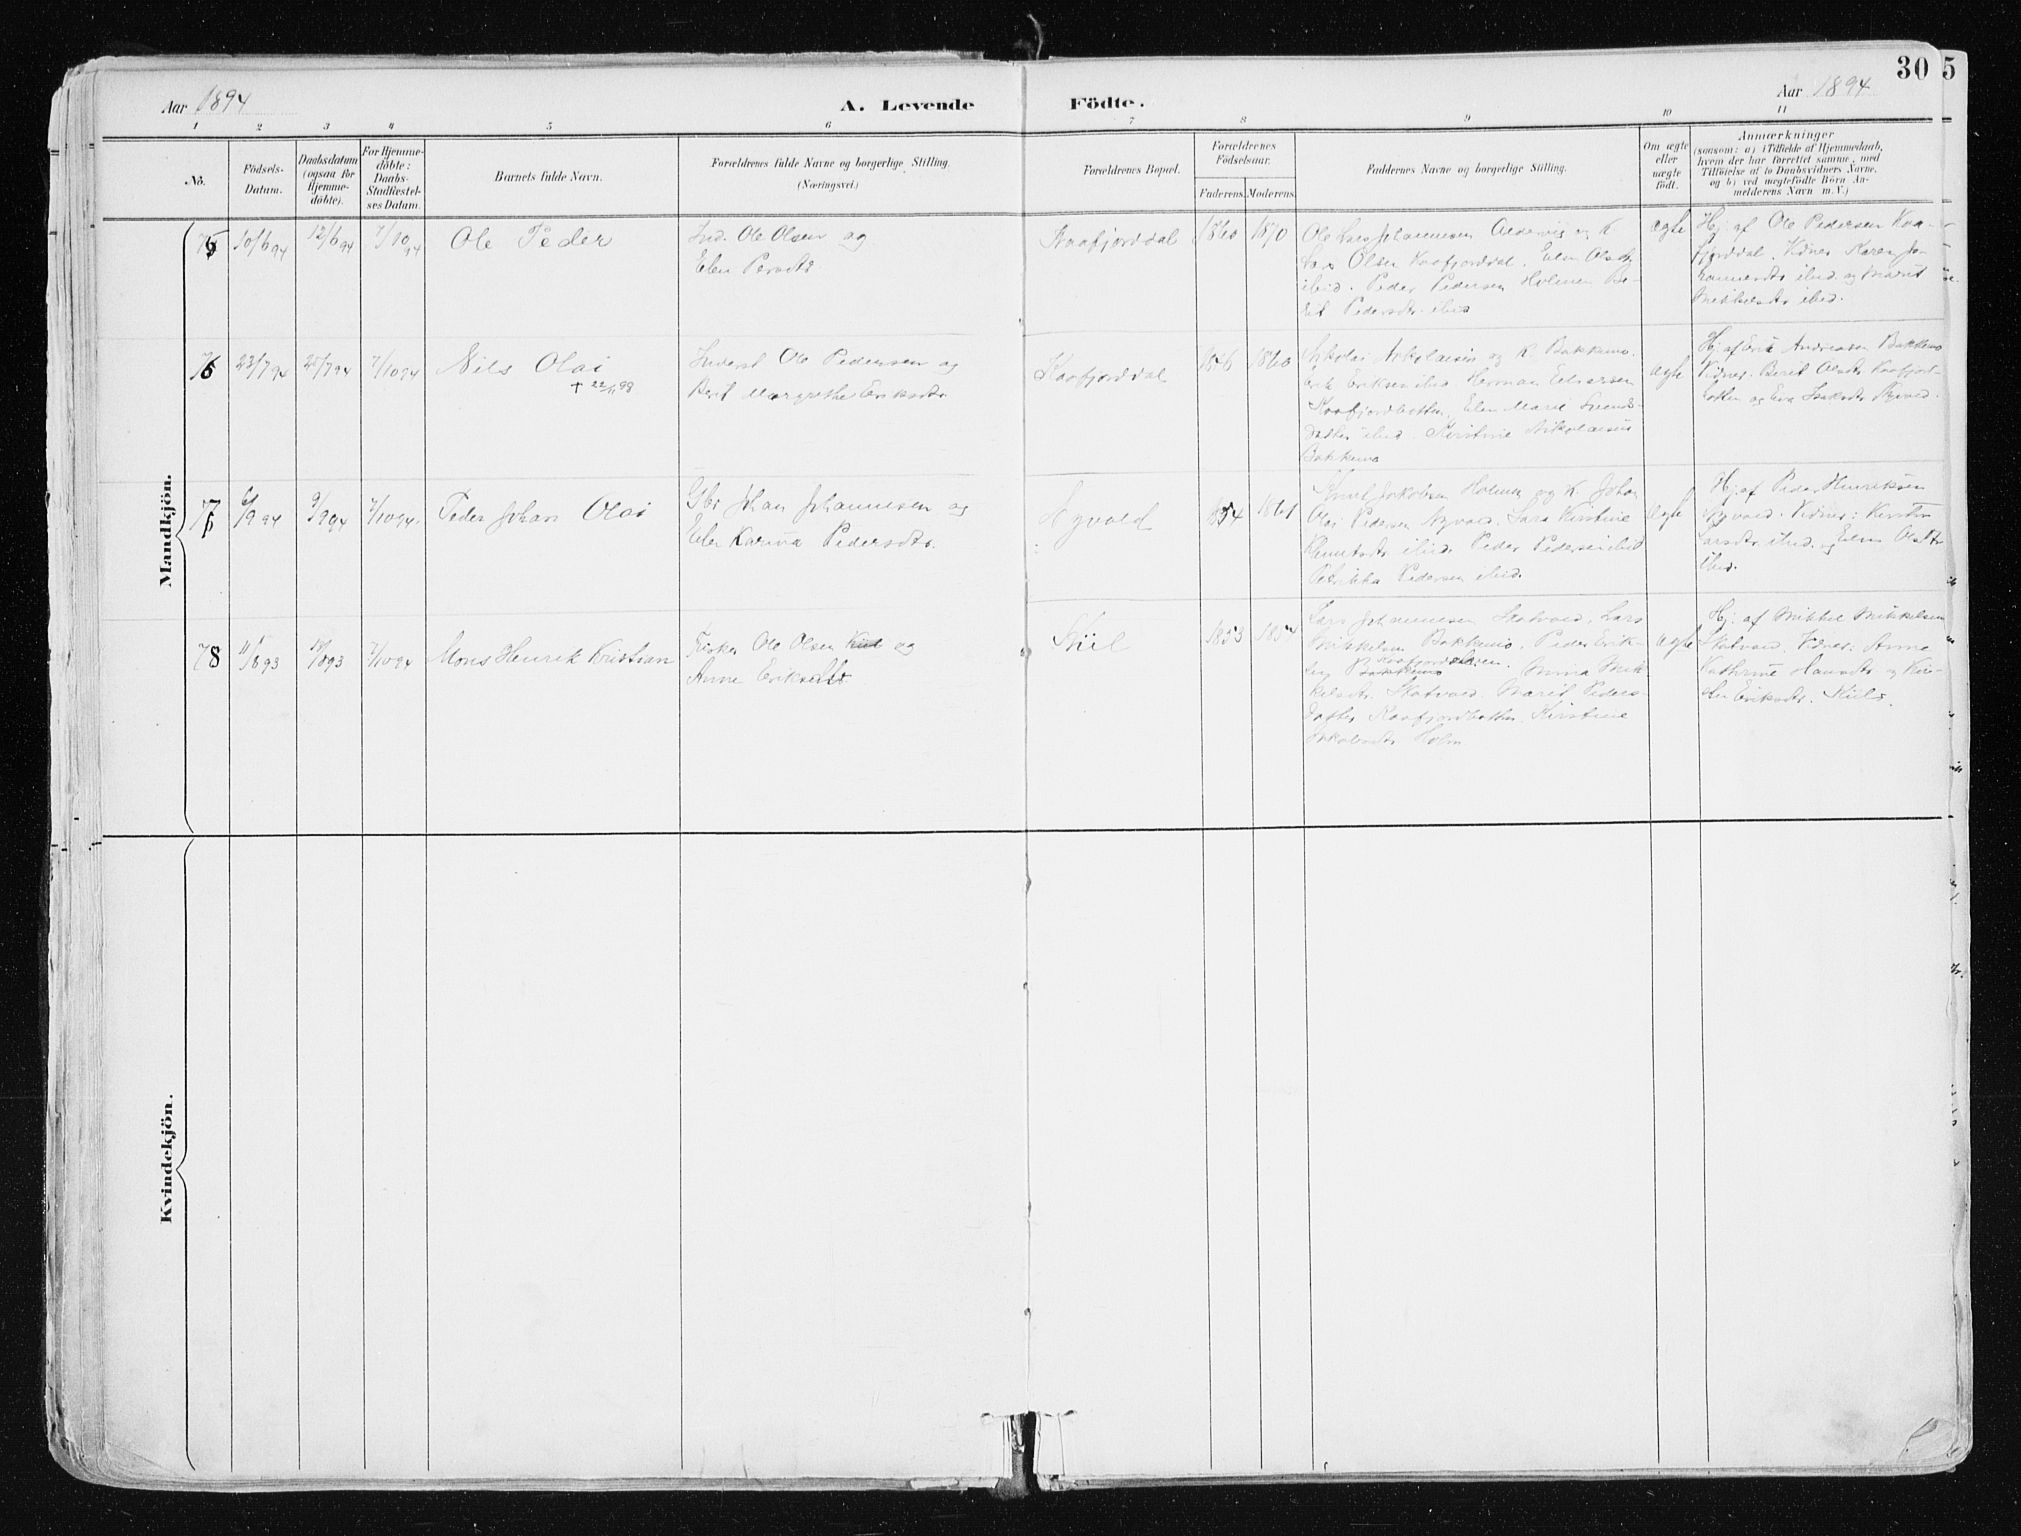 30
5
Aar 1894
A. Levende Födte.
Aar 1894
1 2 3 4 5 6 7 8 9 10 11
No.
Födsels-
Datum.
Daabsdatum
(ogsaa for
Hjemme-
döbte).
For Hjemme-
döbte:
Daabs-
Stadfæstel-
ses Datum.
Barnets fulde Navn.
Forældrenes fulde Navne og borgerlige Stilling.
(Næringsvei.)
Forældrenes Bopæl.
Forældrenes
Födselsaar.
Faderens. Moderens.
Faddernes Navne og borgerlige Stilling.
Om ægte
eller
uægte
födt.
Anmærkninger
(saasom: a) i Tilfælde af Hjemmedaab,
hvem der har forrettet samme, med
Tilföielse af to Daabsvidners Navne,
og b) ved uægtefödte Börn An-
melderens Navn m. V.)
Mandkjön.
75
10/6 94
12/6 94
7/10 94
Ole Peder
Ind. Ole Olsen og
Elen Persdtr
Kaafjorddal
1860
1870
Ole Lars Johannesen og K.
Lars Olsen Kaafjorddal. Elen Olsdtr
ibid. Peder Pedersen Holmen Be-
rit Pedersdtr ibid
ægte
Hj. af Ole Pedersen Kaa-
fjorddal. Vidner Karen Jo-
hannesdtr ibid. og Marit
Mikkelsdtr ibid.
76
23/7 94
25/7 94
7/10 94
Nils Olai
† 22/11 99
Inderst Ole Pedersen og
Berit Margrethe Eriksdtr
Kaafjorddal
1856
1860
Nikolai Nikolaisen og K. Bakkemo.
Erik Eriksen ibid. Herman
Kaafjordbotten, Elen Marie Svends-
datter ibid. Kirstine Nikolaisen
Bakkemo
ægte
Hj. af Erik Andreasen Bakkemo
Vidner. Berit Olsdtr Kaafjord-
botten og Eva Isaksdtr Nyvold.
77
6/9 94
9/9 94
7/10 94.
Peder Johan Olai
Gbr Johan Johannesen og
Elen Karina Pedersdtr.
Nyvold
1854
1861
Knut Jakobsen Holmen og K. Johan
Olai Pedersen Nyvold. Lara Kirstine
Knutsdtr ibid. Peder Pedersen ibid
Petrikka Pedersen ibid.
ægte
Hj. af Peder Henriksen
Nyvold. Vidner: Kirsten
Larsdtr ibid. og Elen Olsdtr
ibid.
78
11/1893
1893
7/10 94
Mons Henrik Kristian
Fisker Ole Olsen og
Anne Eriksdtr.
Kiil
1853
1854
Lars Johannesen Skatvold, Lars
Mikkelsen Bakkemo, Peder Erik-
sen Bakkemo. Mina Mik-
kelsdtr. Skatvold. Marit Peders-
datter Kaafjordbotten. Kirstine
Jakobsdtr Holm
ægte
Hj. af Mikkel Mikkelsen
Skatvold. Vidner: Anne
Kathrine Hansdtr og Kir-
sten Eriksdtr. Kiil.
Kvindekjön.